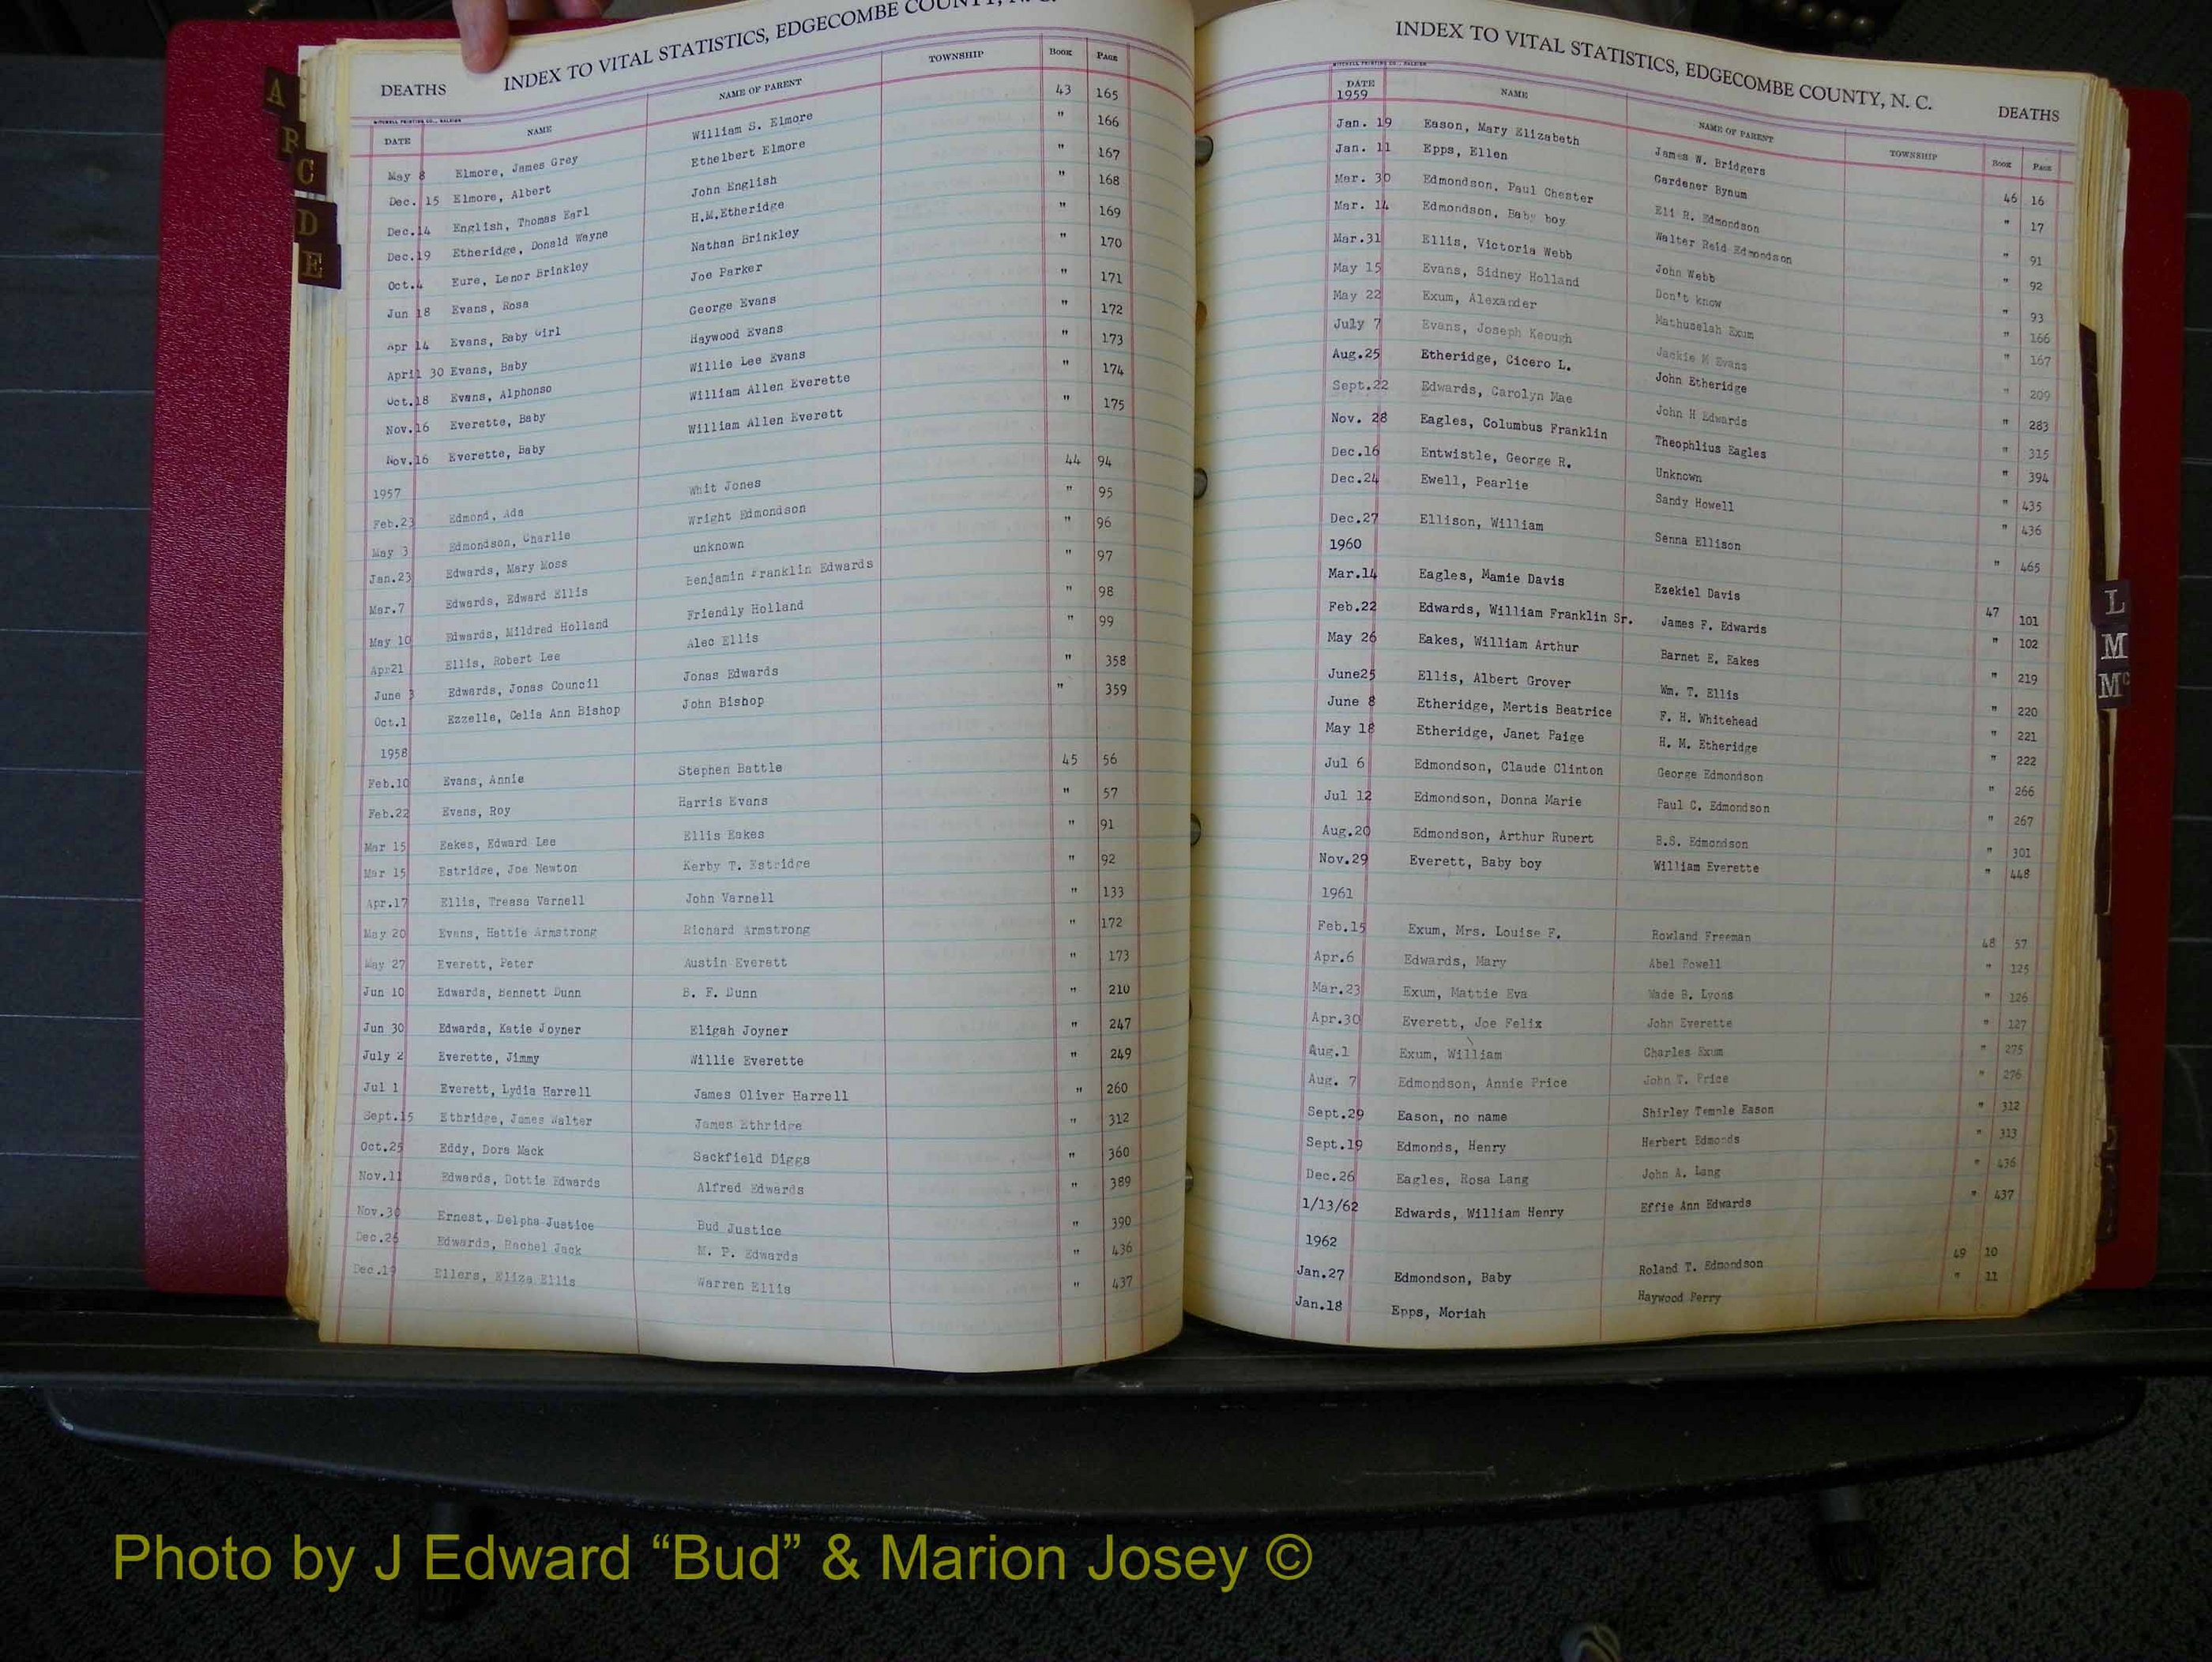 A
B
C
D
E
DEATHS INDEX TO VITAL STATISTICS, EDGECOMBE COUNTY, N. C.
MITCHELL PRINTING CO., RALEIGH
DATE NAME NAME OF PARENT TOWNSHIP BOOK PAGE
May 8 Elmore, James Grey William S. Elmore 43 165
Dec. 15 Elmore, Albert Ethelbert Elmore " 166
Dec.14 English, Thomas Earl John English " 167
Dec.19 Etheridge, Donald Wayne H.M.Etheridge " 168
Oct.4 Eure, Lenor Brinkley Nathan Brinkley " 169
Jun 18 Evans, Rosa Joe Parker " 170
Apr 14 Evans, Baby Girl George Evans " 171
April 30 Evans, Baby Haywood Evans " 172
Oct.18 Evans, Alphonso Willie Lee Evans " 173
Nov.16 Everette, Baby William Allen Everette " 174
Nov.16 Everette, Baby William Allen Everett " 175
1957
Feb.23 Edmond, Ada Whit Jones 44 94
May 3 Edmondson, Charlie Wright Edmondson " 95
Jan.23 Edwards, Mary Moss unknown " 96
Mar.7 Edwards, Edward Ellis Benjamin Franklin Edwards " 97
May 10 Edwards, Mildred Holland Friendly Holland " 98
Apr21 Ellis, Robert Lee Alec Ellis " 99
June 3 Edwards, Jonas Council Jonas Edwards " 358
Oct.1 Ezzelle, Celia Ann Bishop John Bishop " 359
1958
Feb.10 Evans, Annie Stephen Battle 45 56
Feb.22 Evans, Roy Harris Evans " 57
Mar 15 Eakes, Edward Lee Ellis Eakes " 91
Mar 15 Estridge, Joe Newton Kerby T. Estridge " 92
Apr.17 Ellis, Treasa Varnell John Varnell " 133
May 20 Evans, Hattie Armstrong Richard Armstrong " 172
May 27 Everett, Peter Austin Everett " 173
Jun 10 Edwards, Bennett Dunn B. F. Dunn " 210
Jun 30 Edwards, Katie Joyner Eligah Joyner " 247
July 2 Everette, Jimmy Willie Everette " 249
Jul 1 Everett, Lydia Harrell James Oliver Harrell " 260
Sept.15 Ethridge, James Walter James Ethridge " 312
Oct.25 Eddy, Dora Mack Sackfield Diggs " 360
Nov.11 Edwards, Dottie Edwards Alfred Edwards " 389
Nov.30 Ernest, Delpha Justice Bud Justice " 390
Dec.26 Edwards, Rachel Jack M. P. Edwards " 436
Dec.19 Ellers, Eliza Ellis Warren Ellis " 437
INDEX TO VITAL STATISTICS, EDGECOMBE COUNTY, N. C. DEATHS
MITCHELL PRINTING CO., RALEIGH
DATE NAME NAME OF PARENT TOWNSHIP BOOK PAGE
1959
Jan. 19 Eason, Mary Elizabeth James W. Bridgers 46 16
Jan. 11 Epps, Ellen Gardener Bynum " 17
Mar. 30 Edmondson, Paul Chester Eli R. Edmondson " 91
Mar. 14 Edmondson, Baby boy Walter Reid Edmondson " 92
Mar.31 Ellis, Victoria Webb John Webb " 93
May 15 Evans, Sidney Holland Don't know " 166
May 22 Exum, Alexander Mathuselah Exum " 167
July 7 Evans, Joseph Keough Jackie M Evans " 209
Aug.25 Etheridge, Cicero L. John Etheridge " 283
Sept.22 Edwards, Carolyn Mae John H Edwards " 315
Nov. 28 Eagles, Columbus Franklin Theophlius Eagles " 394
Dec.16 Entwistle, George R. Unknown " 435
Dec.24 Ewell, Pearlie Sandy Howell " 436
Dec.27 Ellison, William Senna Ellison " 465
1960
Mar.14 Eagles, Mamie Davis Ezekiel Davis 47 101
Feb.22 Edwards, William Franklin Sr. James F. Edwards " 102
May 26 Eakes, William Arthur Barnet E. Eakes " 219
June25 Ellis, Albert Grover Wm. T. Ellis " 220
June 8 Etheridge, Mertis Beatrice F. H. Whitehead " 221
May 18 Etheridge, Janet Paige H. M. Etheridge " 222
Jul 6 Edmondson, Claude Clinton George Edmondson " 266
Jul 12 Edmondson, Donna Marie Paul C. Edmondson " 267
Aug.20 Edmondson, Arthur Rupert B.S. Edmondson " 301
Nov.29 Everett, Baby boy William Everette " 448
1961
Feb.15 Exum, Mrs. Louise F. Rowland Freeman 48 57
Apr.6 Edwards, Mary Abel Powell " 125
Mar.23 Exum, Mattie Eva Wade B. Lyons " 126
Apr.30 Everett, Joe Felix John Everette " 127
Aug.1 Exum, William Charles Exum " 275
Aug. 7 Edmondson, Annie Price John T. Price " 276
Sept.29 Eason, no name Shirley Temple Eason " 312
Sept.19 Edmonds, Henry Herbert Edmonds " 313
Dec.26 Eagles, Rosa Lang John A. Lang " 436
1/13/62 Edwards, William Henry Effie Ann Edwards " 437
1962
Jan.27 Edmondson, Baby Roland T. Edmondson 49 10
Jan.18 Epps, Moriah Haywood Perry " 11
L
M
Mc
Photo by J Edward “Bud” & Marion Josey ©